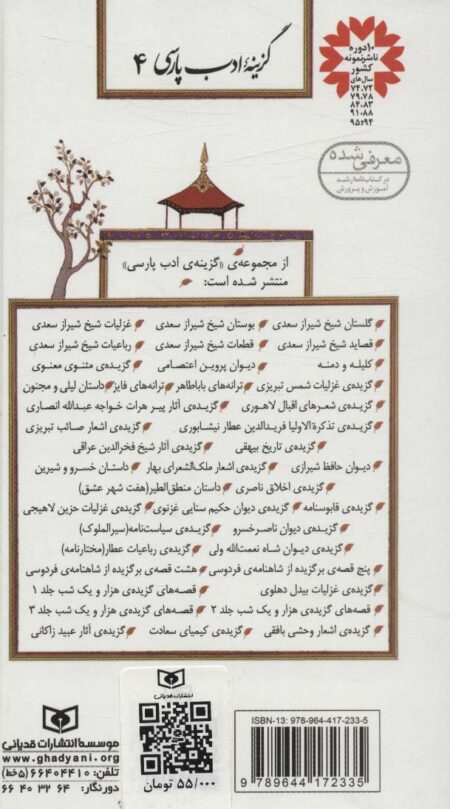 گزینهٔ ادب پارسی ۴
۱۰دوره
ناشرنمونه
کشور
سال‌های
۷۴،۷۲
۷۹،۷۸
۸۴،۸۳
۹۱،۸۸
۹۴و۹۵
معرفی شده
در کتابنامه رشد
آموزش و پرورش
از مجموعه‌ی «گزینه‌ی ادب پارسی»
منتشر شده است:
گلستان شیخ شیراز سعدی بوستان شیخ شیراز سعدی غزلیات شیخ شیراز سعدی
قصاید شیخ شیراز سعدی قطعات شیخ شیراز سعدی رباعیات شیخ شیراز سعدی
کلیله و دمنه دیوان پروین اعتصامی گزیده‌ی مثنوی معنوی
گزیده‌ی غزلیات شمس تبریزی ترانه‌های باباطاهر ترانه‌های فایز داستان لیلی و مجنون
گزیده‌ی شعرهای اقبال لاهوری گزیده‌ی آثار پیر هرات خواجه عبدالله انصاری
گزیده‌ی تذکرة‌الاولیا فریدالدین عطار نیشابوری گزیده‌ی اشعار صائب تبریزی
گزیده‌ی تاریخ بیهقی گزیده‌ی آثار شیخ فخرالدین عراقی
دیوان حافظ شیرازی گزیده‌ی اشعار ملک‌الشعرای بهار داستان خسرو و شیرین
گزیده‌ی اخلاق ناصری داستان منطق‌الطیر(هفت شهر عشق)
گزیده‌ی قابوسنامه گزیده‌ی دیوان حکیم سنایی غزنوی گزیده‌ی غزلیات حزین لاهیجی
گزیده‌ی دیوان ناصرخسرو گزیده‌ی سیاست‌نامه(سیرالملوک)
گزیده‌ی دیوان شاه نعمت‌الله ولی گزیده‌ی رباعیات عطار(مختارنامه)
پنج قصه‌ی برگزیده از شاهنامه‌ی فردوسی هشت قصه‌ی برگزیده از شاهنامه‌ی فردوسی
گزیده‌ی غزلیات بیدل دهلوی قصه‌های گزیده‌ی هزار و یک شب جلد ۱
قصه‌های گزیده‌ی هزار و یک شب جلد ۲ قصه‌های گزیده‌ی هزار و یک شب جلد ۳
گزیده‌ی اشعار وحشی بافقی گزیده‌ی کیمیای سعادت گزیده‌ی آثار عبید زاکانی
موسسه‌انتشارات قدیانی
www.ghadyani.org
تلفن: ۶۶۴۰۴۴۱۰ (۵خط)
دورنگار: ۶۶ ۴۰ ۳۲ ۶۴
انتشارات قدیانی
۵۵/۰۰۰ تومان
ISBN-13: 978-964-417-233-5
9 789644 172335